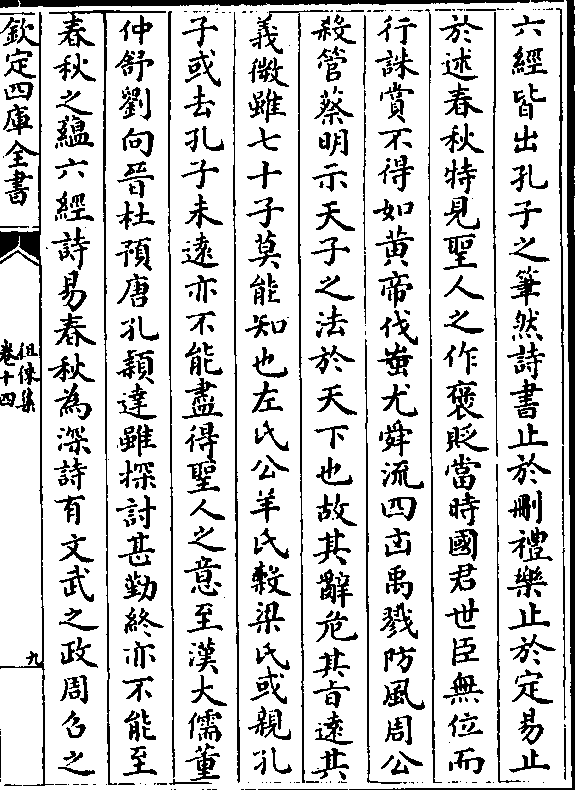 六經皆出孔子之筆然詩書止於刪禮樂止於定易止
於述春秋特見聖人之作褒貶當時國君世臣無位而
行誅賞不得如黄帝伐蚩尤舜流四凶禹戮防風周公
殺管蔡明示天子之法於天下也故其辭危其旨逺其
義微雖七十子莫能知也左氏公羊氏糓梁氏或親孔
子或去孔子未逺亦不能盡得聖人之意至漢大儒董
仲舒劉向晉杜預唐孔頴達雖探討甚勤終亦不能至
春秋之藴六經詩易春秋為深詩有文武之政周召之
欽定四庫全書
徂徠集
卷十四
九